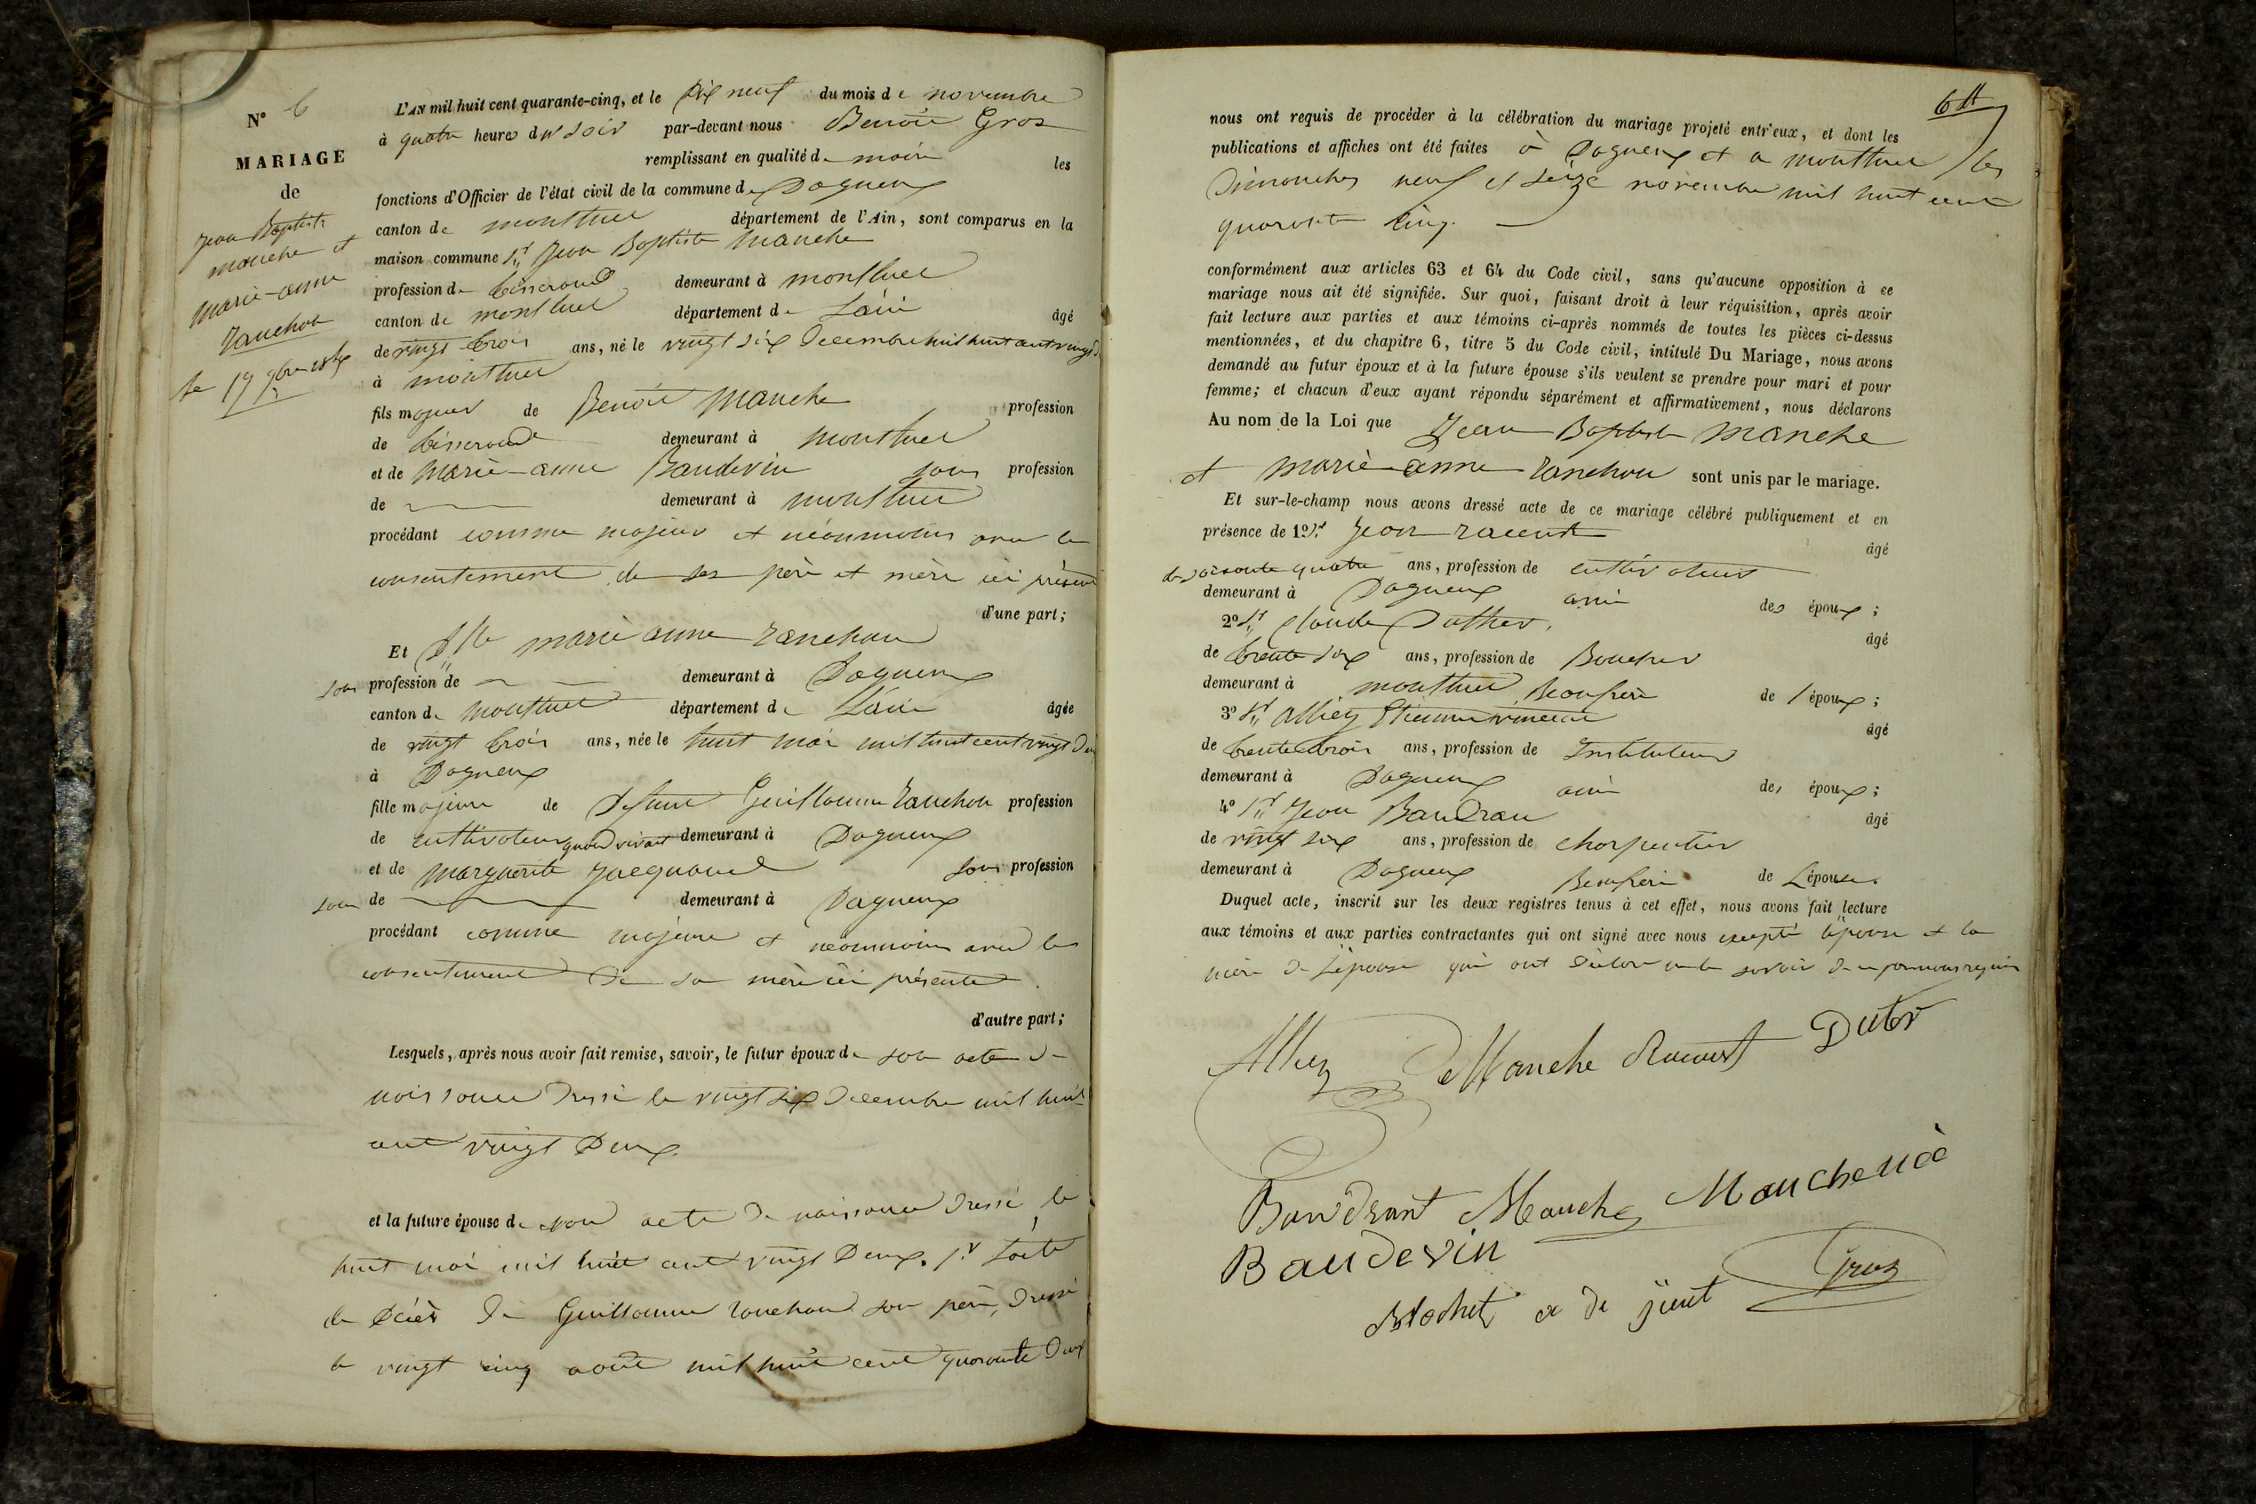 N° 6
MARIAGE
de
Jean Baptiste
manche et
marie-anne
Ranchon
le 19 9bre 1845
L'AN mil huit cent quarante-cinq, et le Dix neuf du mois de novembre
à quatre heures du soir par-devant nous Benoit Gros
remplissant en qualité de maire les
fonctions d'Officier de l'état civil de la commune de Dagneux
canton de montluel département de l'Ain, sont comparus en la
maison commune Sr Jean Baptiste Manche
profession de tisserand demeurant à montluel
canton de montluel département de L'ain âgé
de vingt trois ans, né le vingt six Decembre mil huit cent vingt
à montluel
fils majeur de Benoit Manche profession
de tisserand demeurant à montluel
et de marie-anne Baudevin sans profession
de demeurant à montluel
procédant comme majeur et néanmoins avec le
consentement de ses père et mère ici présents
d'une part;
Et Dlle marie anne Ranchon
sans profession de demeurant à Dagneux
canton de montluel département de L'ain âgée
de vingt trois ans, née le huit mai mil huit cent vingt deux
à Dagneux
fille majeure de Defunt Guillaume Ranchon profession
de cultivateur quand vivait demeurant à Dagneux
et de marguerite Jacquand sans profession
sans de demeurant à Dagneux
procédant comme majeure et néanmoins avec le
consentement de sa mère ici présente
d'autre part;
Lesquels, après nous avoir fait remise, savoir, le futur époux de son acte de
naissance dressé le vingt six Decembre mil huit
cent vingt Deux
et la future épouse de son acte de naissance dressé le
huit mai mil huit cent vingt Deux. l'acte
de Décès de Guillaume Ranchon son père, dressé
le vingt cinq août mil huit cent quarante Deux
6
nous ont requis de procéder à la célébration du mariage projeté entr'eux, et dont les
publications et affiches ont été faites à Dagneux et a montluel les
Dimanches neuf et seize novembre mil huit cent
quarante cinq.
conformément aux articles 63 et 64 du Code civil, sans qu'aucune opposition à ce
mariage nous ait été signifiée. Sur quoi, faisant droit à leur réquisition, après avoir
fait lecture aux parties et aux témoins ci-après nommés de toutes les pièces ci-dessus
mentionnées, et du chapitre 6, titre 5 du Code civil, intitulé Du Mariage, nous avons
demandé au futur époux et à la future épouse s'ils veulent se prendre pour mari et pour
femme; et chacun d'eux ayant répondu séparément et affirmativement, nous déclarons
Au nom de la Loi que Jean Baptiste Manche
et marie-anne Ranchon sont unis par le mariage.
Et sur-le-champ nous avons dressé acte de ce mariage célébré publiquement et en
présence de 1° Sr Jean Racent âgé
de soixante quatre ans, profession de cultivateur
demeurant à Dagneux ami des époux;
2° Sr Claude Duther âgé
de trente six ans, profession de Boucher
demeurant à montluel Beaufrère de l'époux;
3° Sr Alliey Etienne vincent âgé
de trente trois ans, profession de Instituteur
demeurant à Dagneux ami des époux;
4° Sr Jean Baudran âgé
de vingt six ans, profession de charpentier
demeurant à Dagneux Beaufrère de L'épouse.
Duquel acte, inscrit sur les deux registres tenus à cet effet, nous avons fait lecture
aux témoins et aux parties contractantes qui ont signé avec nous excepté l'épouse et la
mère de l'épouse qui ont déclaré ne le savoir de ce par nous requis
Alliey Manche Racent Duter
Baudrant Manche Manche
Baudevin
Gros